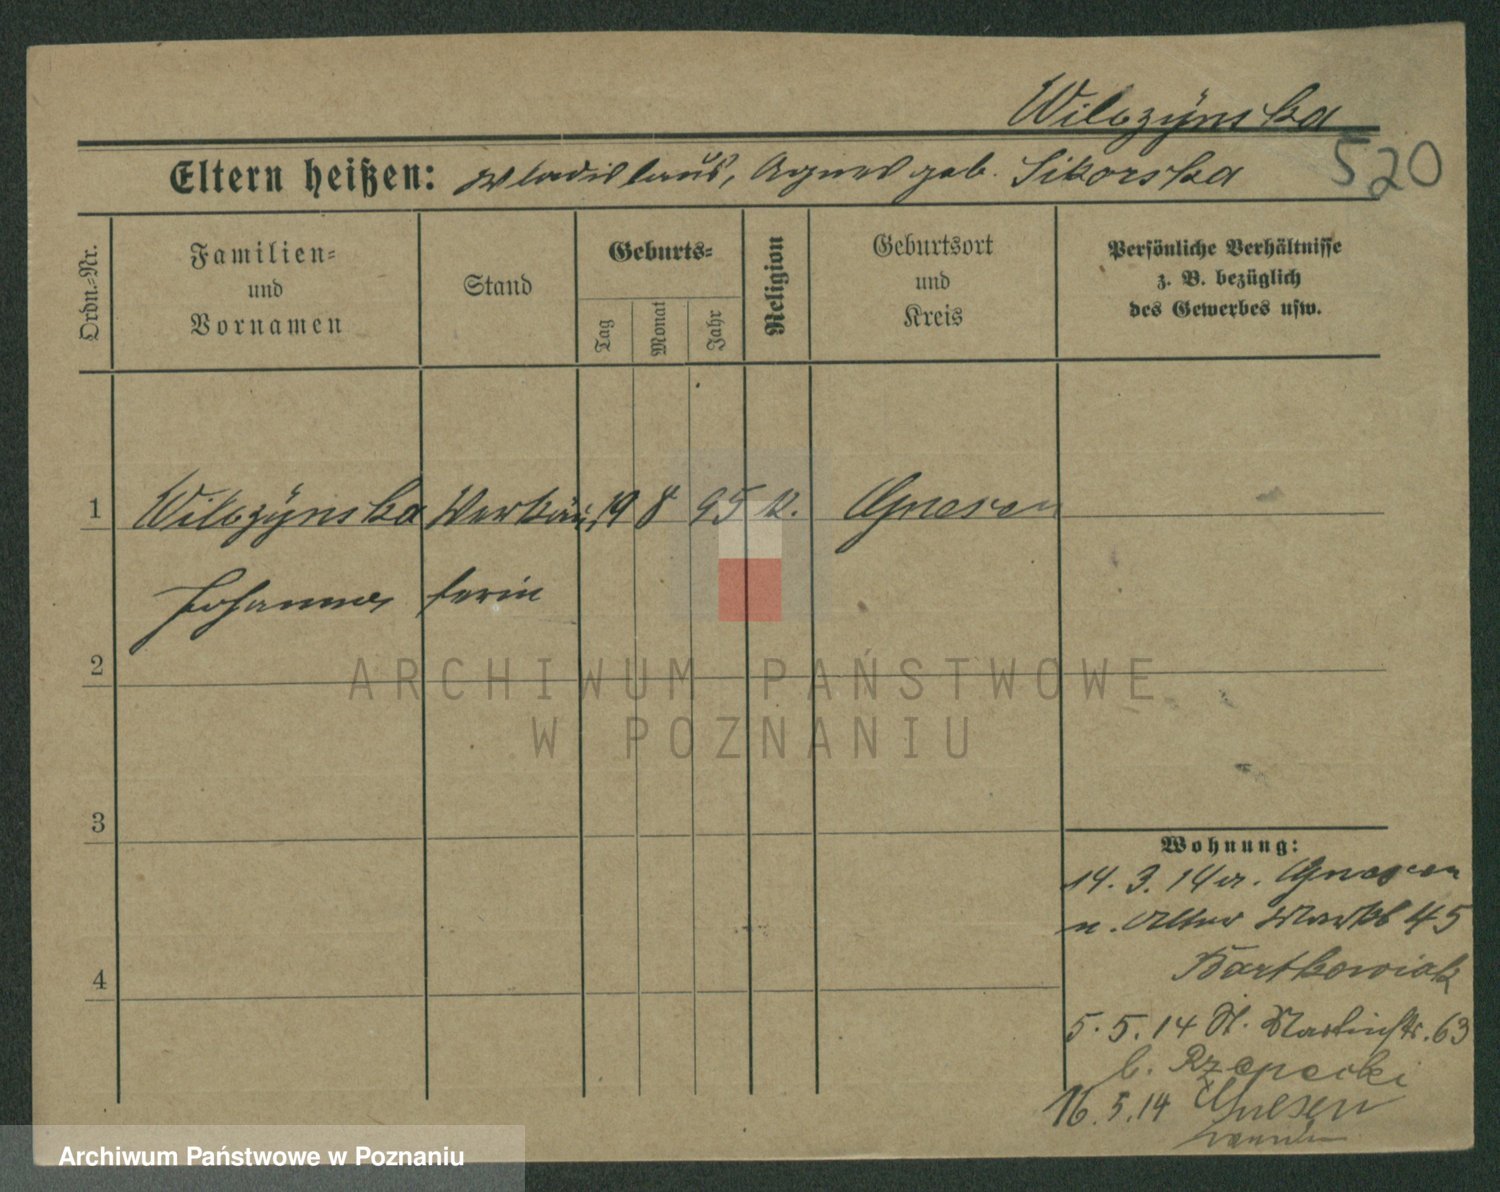 Wilczÿnska
520
Eltern heißen: Wladislaus, Agnes geb. Sikorska
Ordn.=Nr.
Familien=
und
Vornamen
Stand
Geburts=
Tag
Monat
Jahr
Religion
Geburtsort
und
Kreis
Persönliche Verhältnisse
z. B. bezüglich
des Gewerbes usw.
1
Wilczÿnska Verkäu- 19 8 95 k. Gnesen
Johanna ferin
2
ARCHIWUM PAŃSTWOWE
W POZNANIU
3
4
Wohnung:
14. 3. 14 Gnesen
n. Alter Markt 45
Bartkowiak
5. 5. 14 St. Martinstr. 63
b. Rzepecki
16. 5. 14 Gnesen
Archiwum Państwowe w Poznaniu